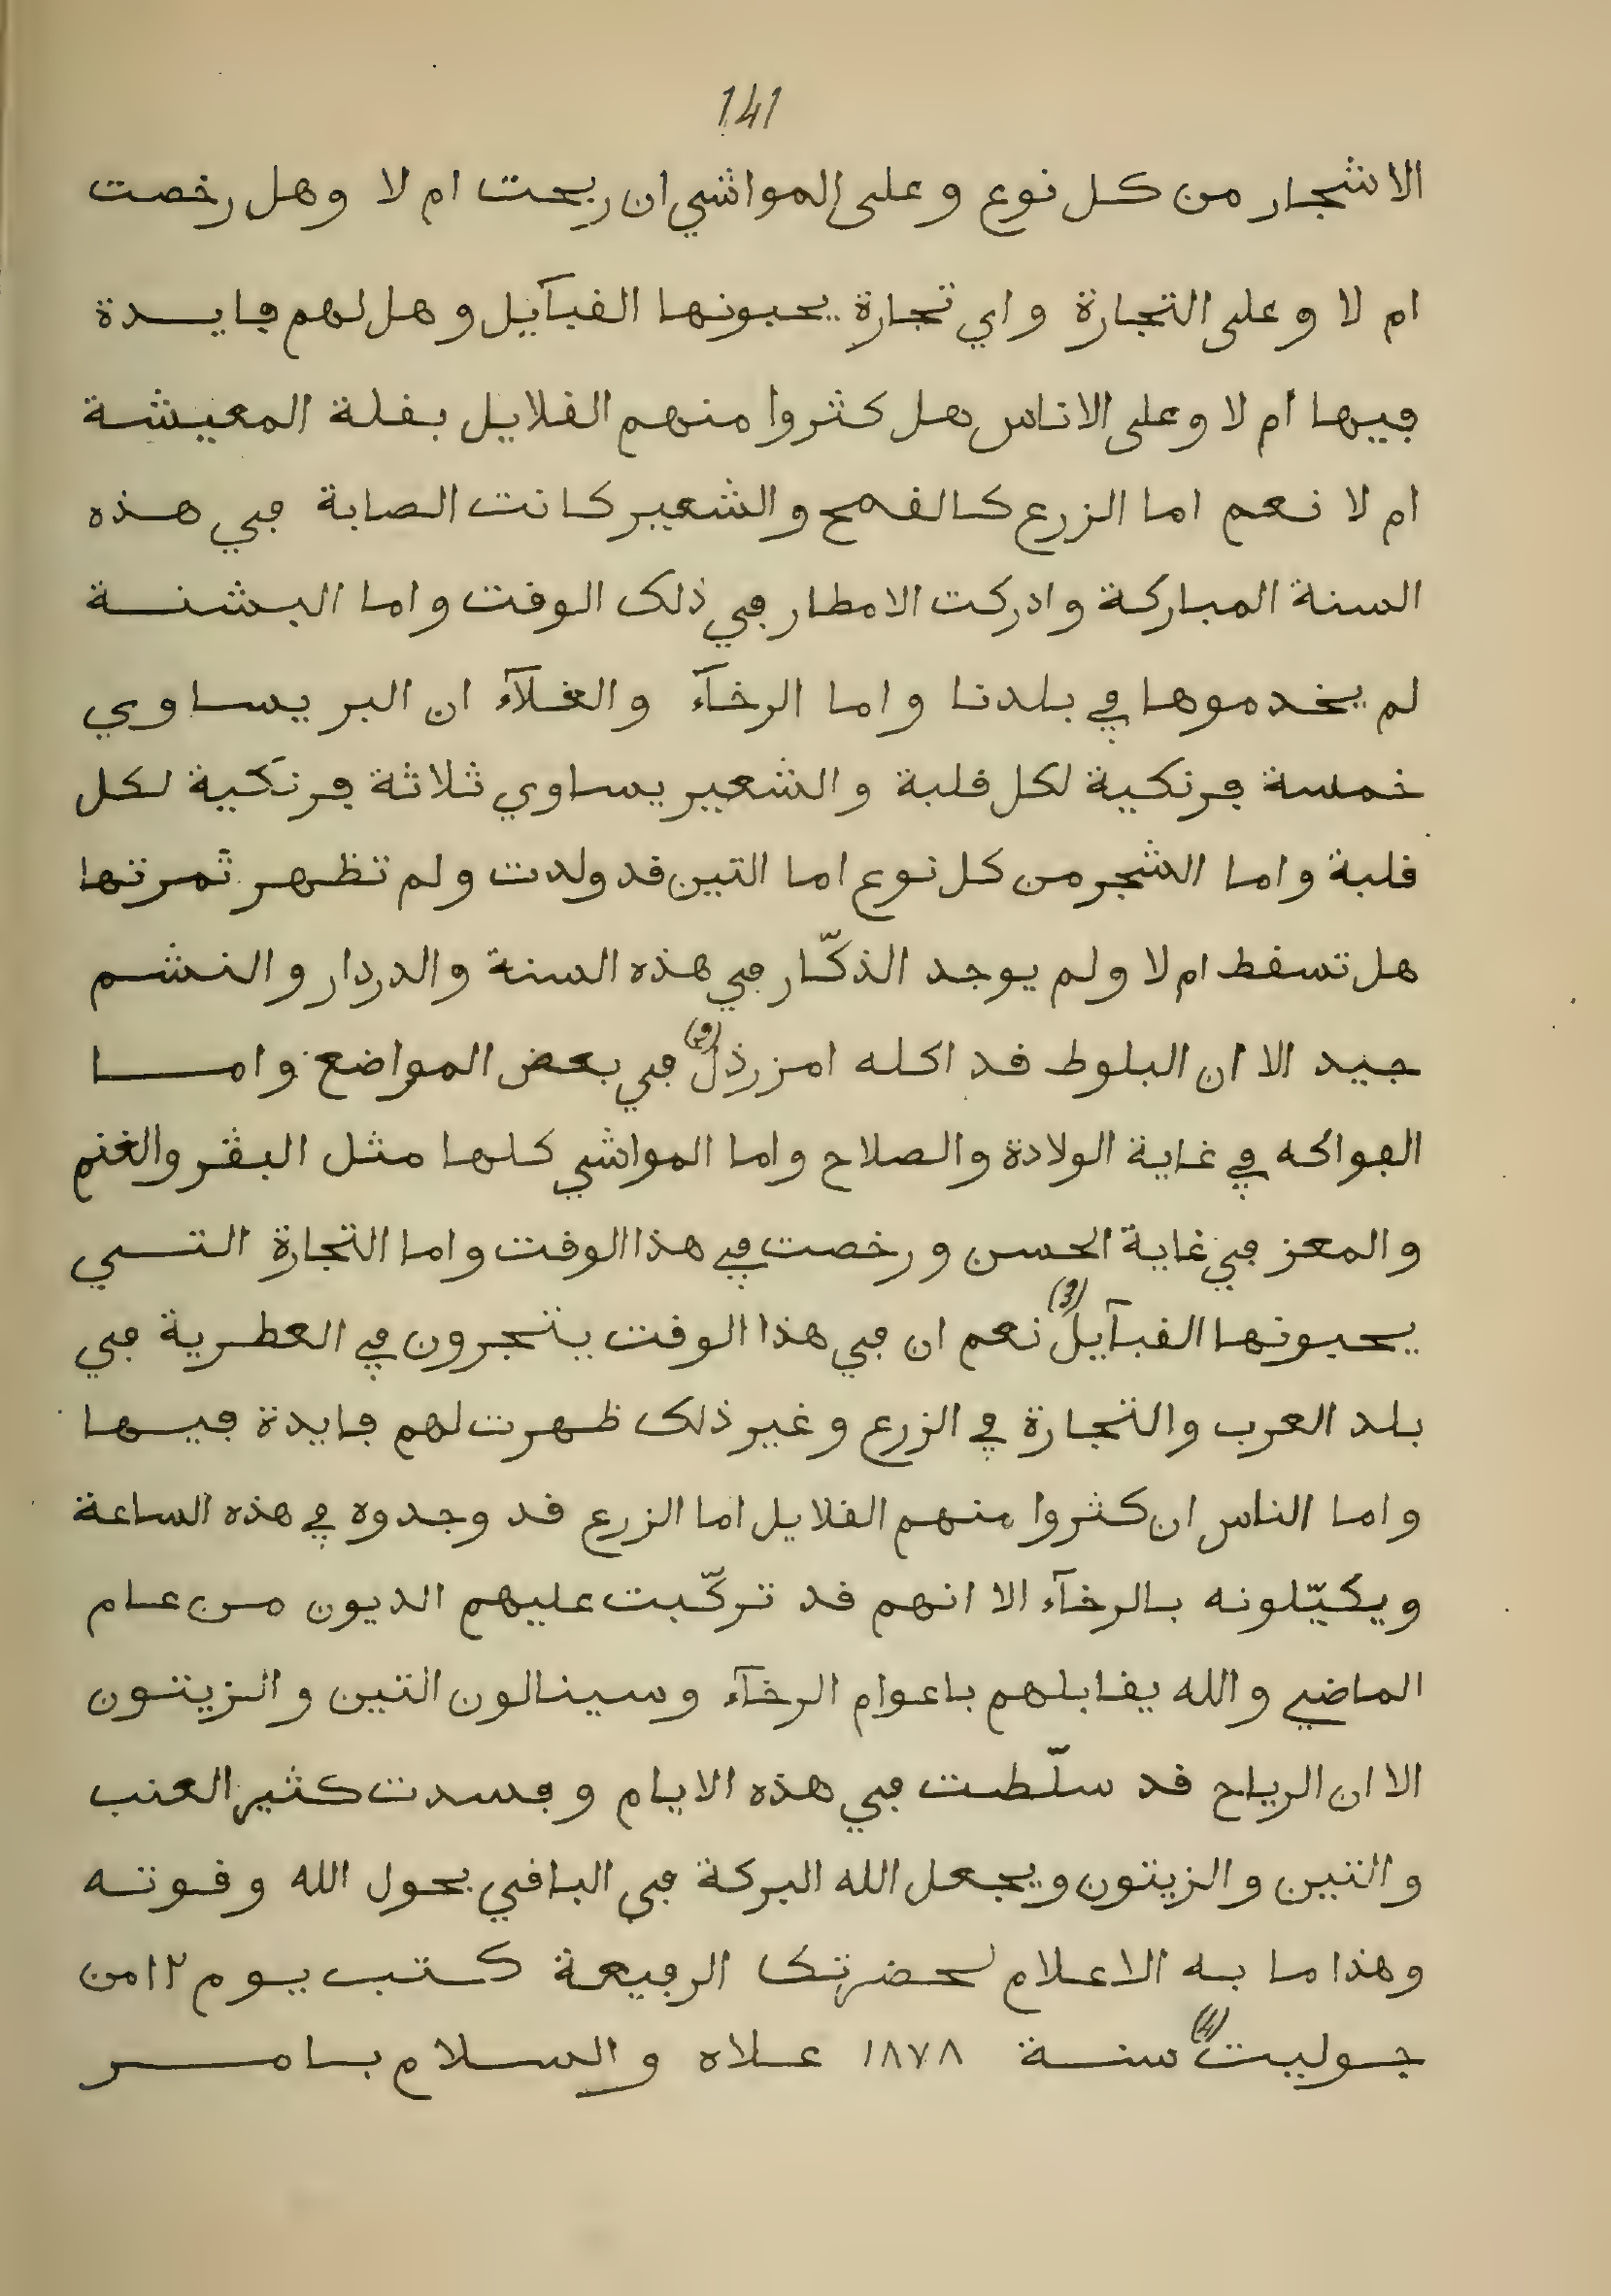 141
الاشجار من كل نوع وعلى المواشي ان ربحت ام لا وهل رخصت
ام لا وعلى التجارة واي تجارة يحبونها القبآيل وهل لهم فايدة
فيها ام لا وعلى الاناس هل كثروا منهم القلايل بقلة المعيشة
ام لا نعم اما الزرع كالقمح والشعير كانت الصابة في هذه
السنة المباركة وادركت الامطار في ذلك الوقت واما البشنة
لم يخدموها في بلدنا واما الرخآء والغلآء ان البر يساوي
خمسة فرنكية لكل قلبة والشعير يساوي ثلاثة فرنكية لكل
قلبة واما الشجر من كل نوع اما التين قد ولدت ولم تظهر ثمرتها
هل تسقط ام لا ولم يوجد الذكّار في هذه السنة والدردار والنشم
جيد الا ان البلوط قد اكله امزرذل في بعض المواضع واما
الفواكه في غاية الولادة والصلاح واما المواشي كلها مثل البقر والغنم
والمعز في غاية الحسن ورخصت في هذا الوقت واما التجارة التي
يحبونها القبآيل (3) نعم ان في هذا الوقت يتجرون في العطرية في
بلد العرب والتجارة في الزرع وغير ذلك ظهرت لهم فايدة فيها
واما الناس ان كثروا منهم القلايل اما الزرع قد وجدوه في هذه الساعة
ويكيّلونه بالرخآء الا انهم قد تركّبت عليهم الديون من عام
الماضي والله يقابلهم باعوام الرخآء وسينالون التين والزيتون
الا ان الرياح قد سلّطت في هذه الايام وفسدت كثير العنب
والتين والزيتون ويجعل الله البركة في الباقي بحول الله وقوته
وهذا ما به الاعلام لحضرتك الرفيعة كتب يوم ١٢ من
جوليت (4) سنة ١٨٧٨ علاه والسلام بامر